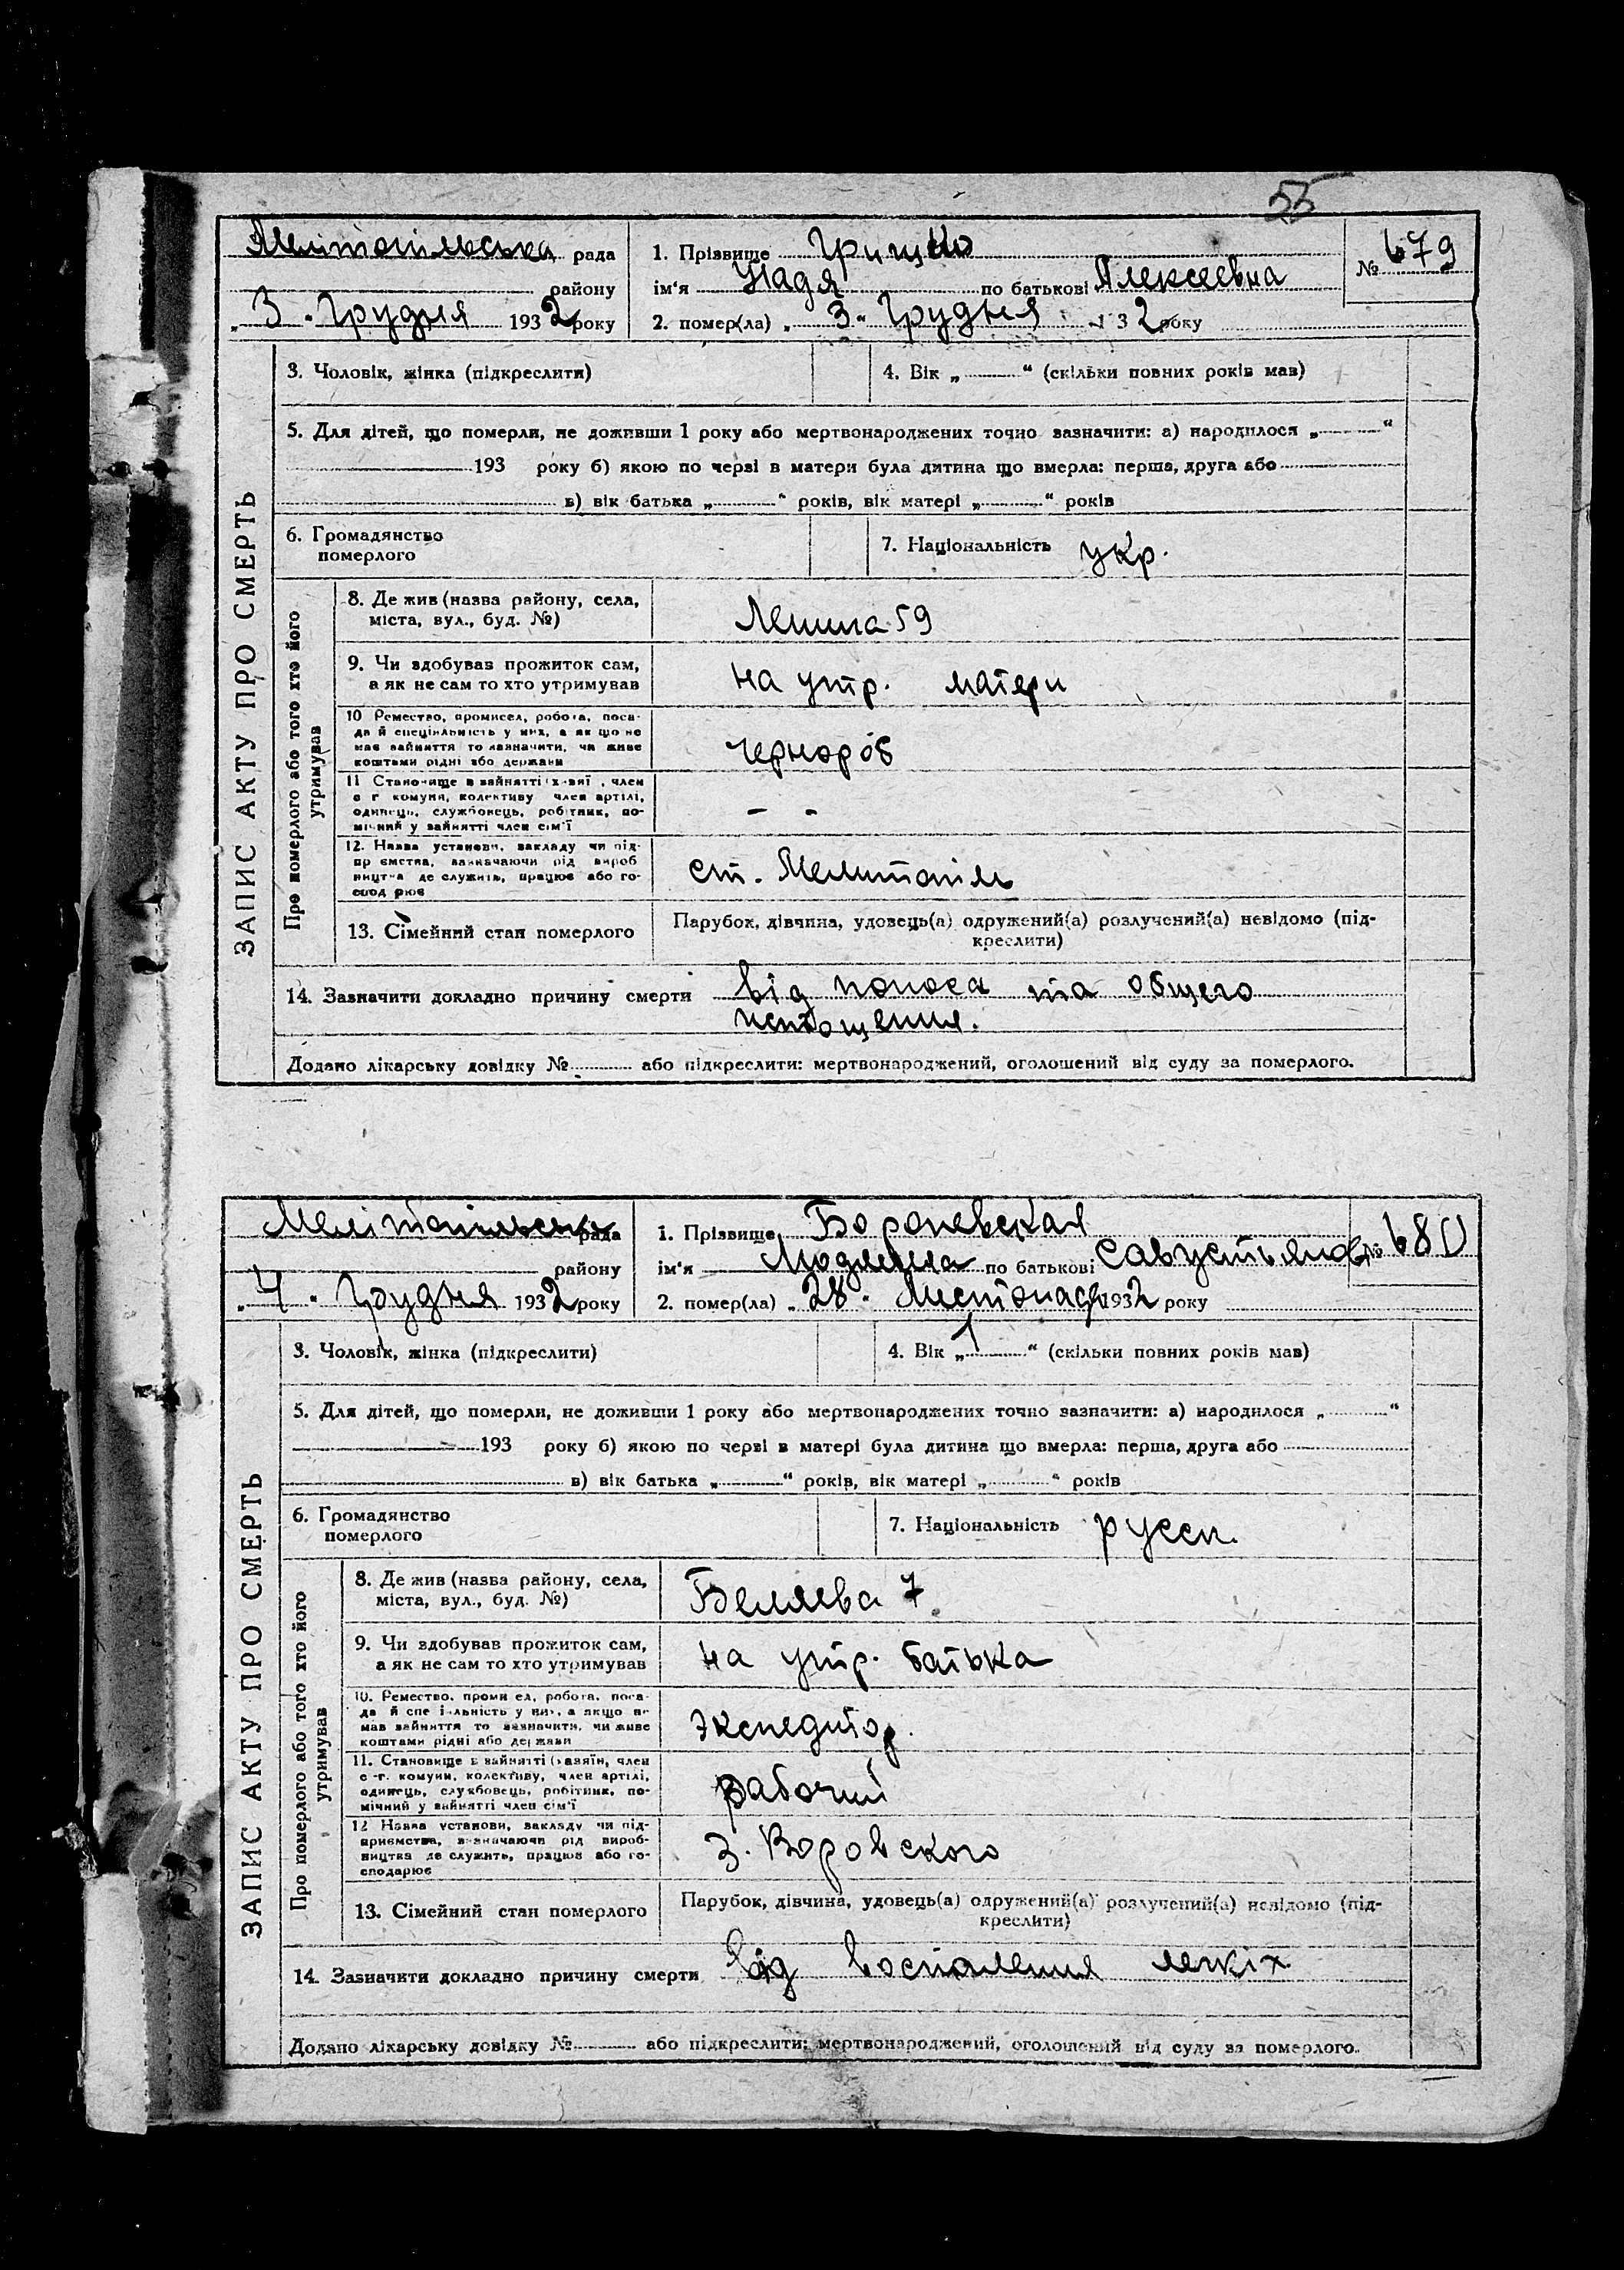 55
Мелітопільська рада
району
„3“ Грудня 1932 року
1. Прізвище Грицко
ім'я Надя по батькові Алексеевна
2. помер(ла) „3“ Грудня 1 3 2 року
№ 679
ЗАПИС АКТУ ПРО СМЕРТЬ
3. Чоловік, жінка (підкреслити)
4. Вік „ “ (скільки повних років мав)
5. Для дітей, що померли, не доживши 1 року або мертвонароджених точно зазначити: а) народилося „ “
193 року б) якою по черзі в матери була дитина що вмерла: перша, друга або
в) вік батька „ “ років, вік матері „ “ років
6. Громадянство
померлого
7. Національність укр.
Про померлого або того хто його
утримував
8. Де жив (назва району, села,
міста, вул., буд. №)
Ленина 59
9. Чи здобував прожиток сам,
а як не сам то хто утримував
на утр. матери
10 Ремество, промисел, робота, поса-
да й спеціяльність у них, а як що не
має зайняття то зазначити, чи живе
коштами рідні або держави
чернороб
11 Становище в зайнятті х зяї , член
с г комуни, колективу член артілі,
одинець, службовець, робітник, по-
мічний у зайнятті член сім'ї
– –
12. Назва установи, закладу чи під-
пр ємства, зазначаючи рід вироб
ництва де служить, працює або го-
спод рює
ст. Мелитопіль
13. Сімейний стан померлого
Парубок, дівчина, удовець(а) одружений(а) розлучений(а) невідомо (під-
креслити)
14. Зазначити докладно причину смерти від поноса та общего
истощения.
Додано лікарську довідку № або підкреслити: мертвонароджений, оголошений від суду за померлого.
Мелітопільська рада
району
„4“ Грудня 1932 року
1. Прізвище Бороневская
ім'я Людмила по батькові Савустьяновн
2. помер(ла) „28“ Листопада 1932 року
№ 680
ЗАПИС АКТУ ПРО СМЕРТЬ
3. Чоловік, жінка (підкреслити)
4. Вік „1“ (скільки повних років мав)
5. Для дітей, що померли, не доживши 1 року або мертвонароджених точно зазначити: а) народилося „ “
193 року б) якою по черзі в матері була дитина що вмерла: перша, друга або
в) вік батька „ “ років, вік матері „ “ років
6. Громадянство
померлого
7. Національність русск.
Про померлого або того хто його
утримував
8. Де жив (назва району, села,
міста, вул., буд. №)
Беляева 7
9. Чи здобував прожиток сам,
а як не сам то хто утримував
на утр. батька
10. Ремество, проми ел, робота, поса-
да й спе іяльність у них, а якщо не
мав зайняття то зазначити, чи живе
коштами рідні або держави
экспедитор.
11. Становище в зайнятті (хазяїн, член
с -г. комуни, колективу, член артілі,
одинець, службовець, робітник, по-
мічний у зайнятті член сім'ї
рабочий
12 Назва установи, закладу чи під-
приємства, зазначаючи рід вироб-
ництва де служить, працює або го-
сподарює
З. Воровского
13. Сімейний стан померлого
Парубок, дівчина, удовець(а) одружений(а) розлучений(а) невідомо (під-
креслити)
14. Зазначити докладно причину смерти від воспаления легкіх
Додано лікарську довідку № або підкреслити: мертвонароджений, оголошений від суду за померлого.